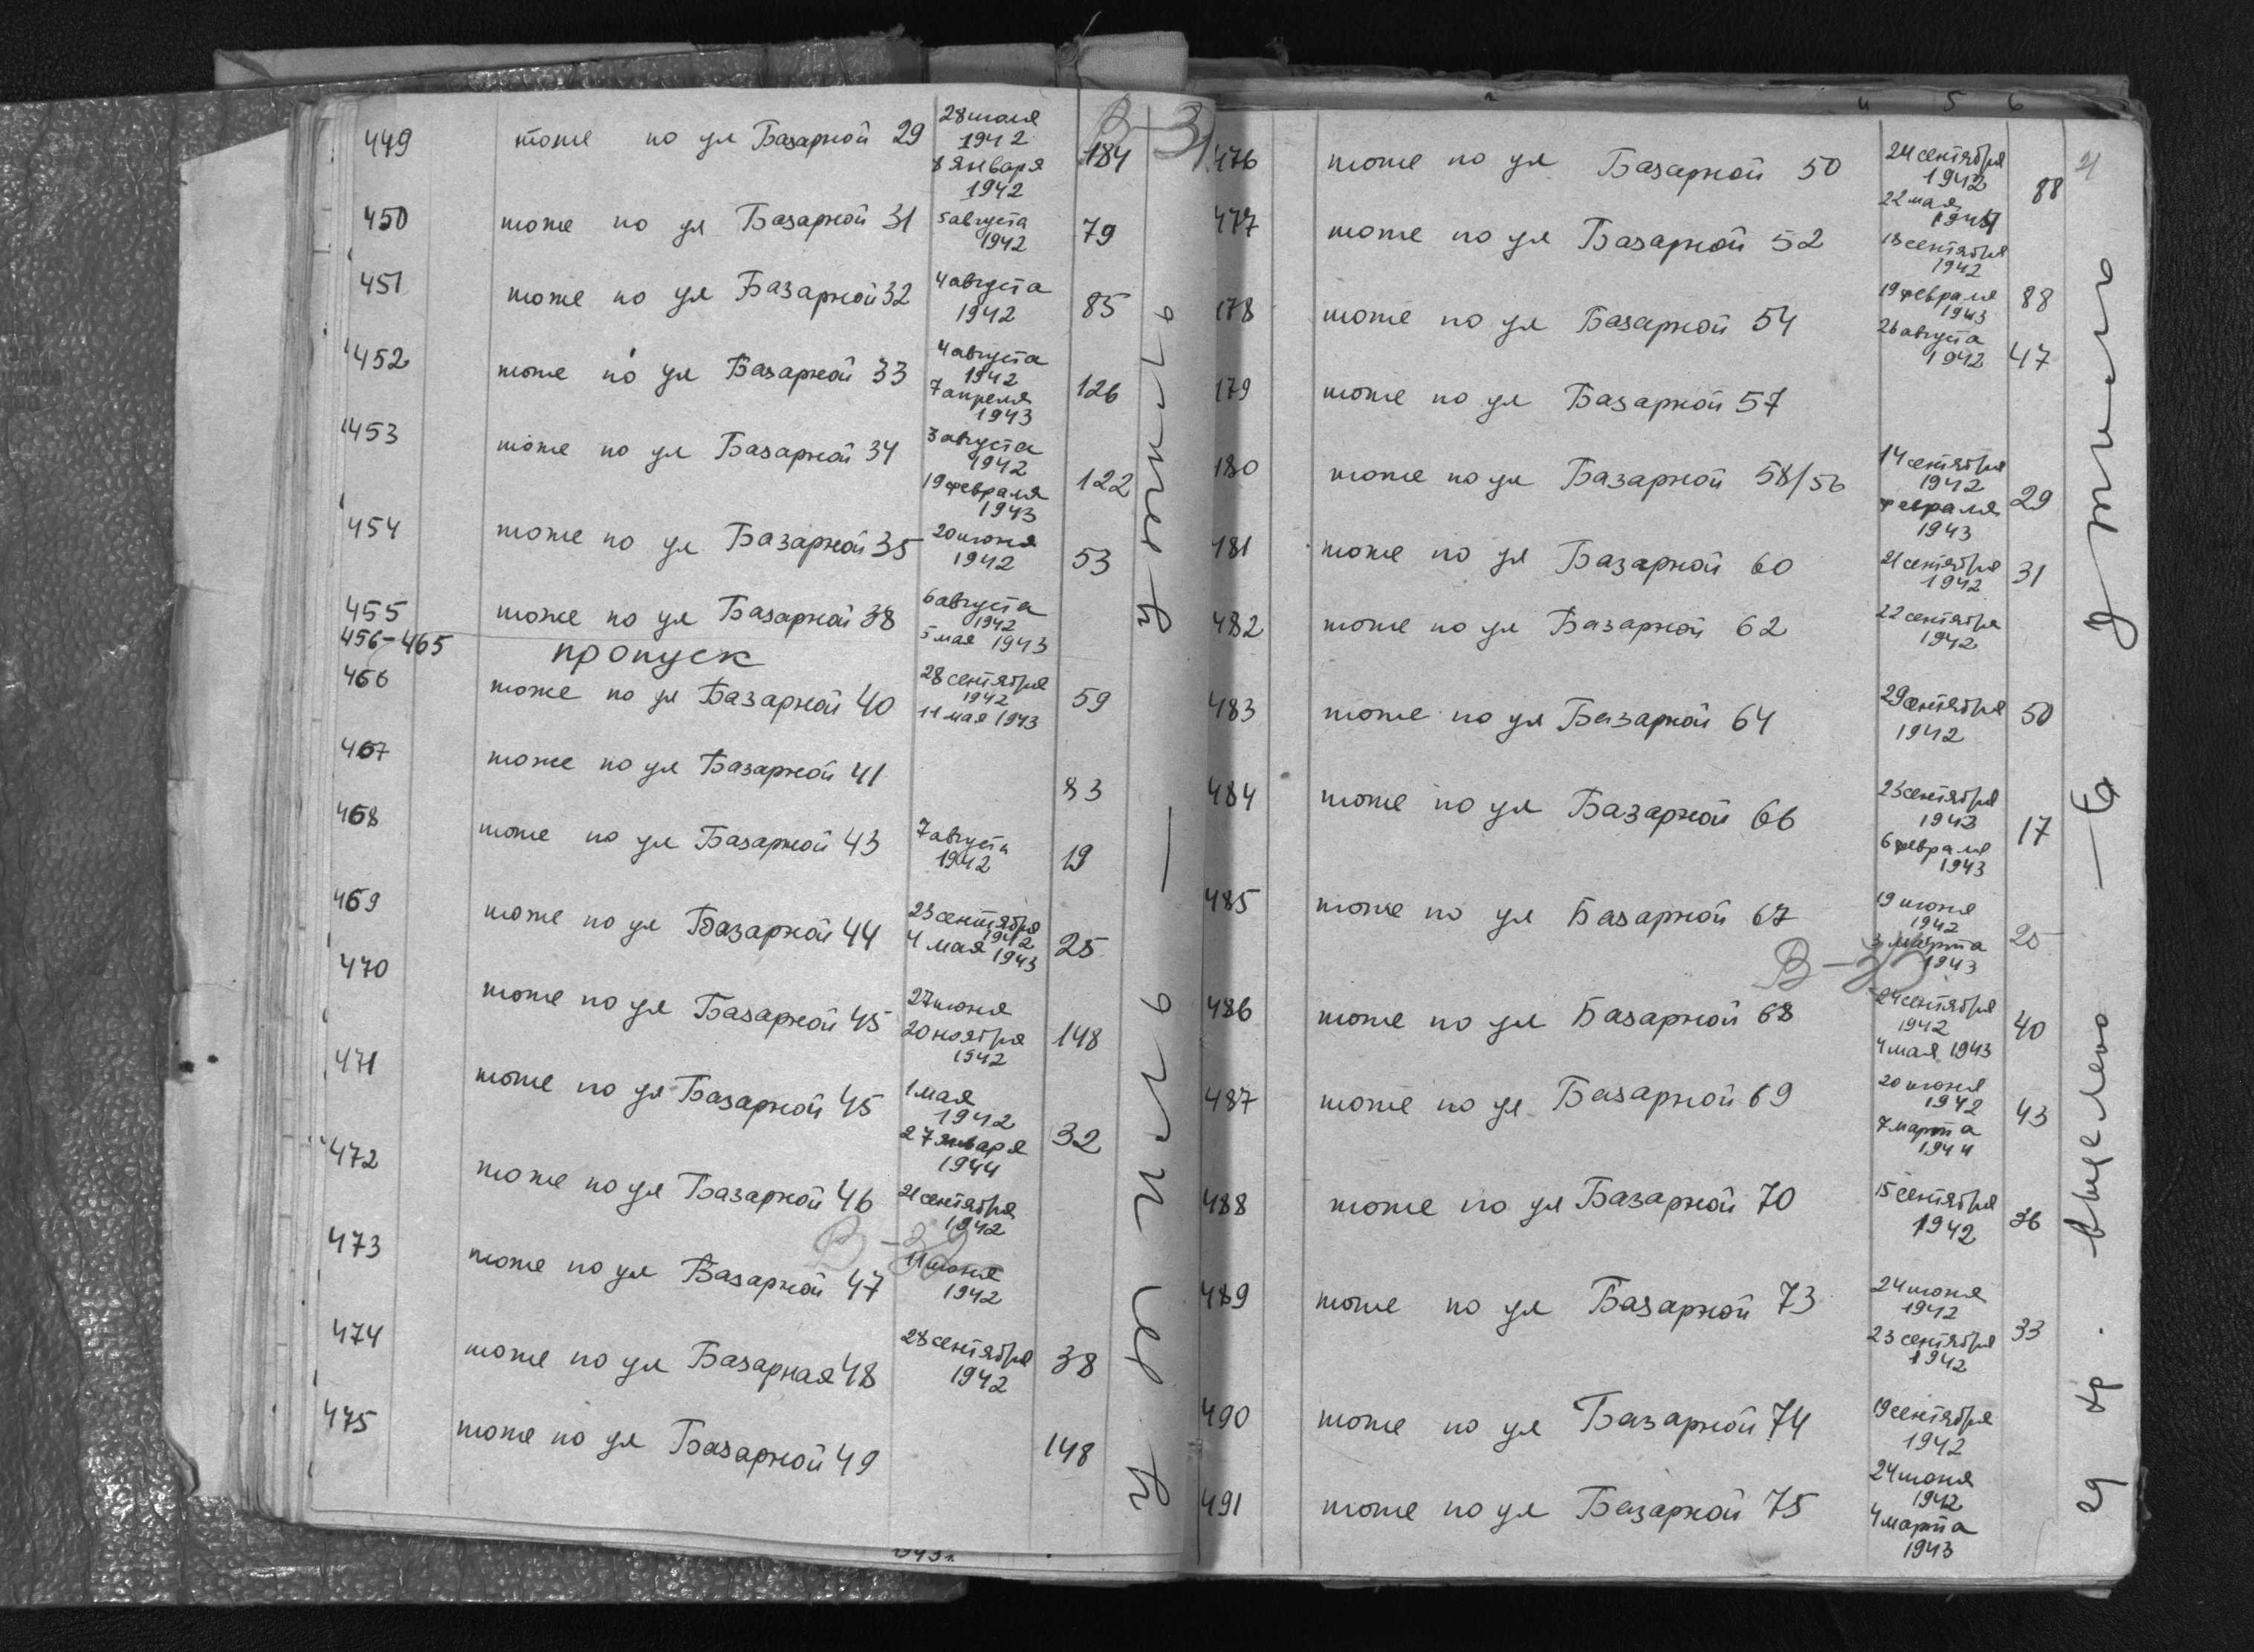 В-31
449 тоже по ул Базарной 29 28 июля 1942 8 января 1942 184
450 тоже по ул Базарной 31 5 августа 1942 79
451 тоже по ул Базарной 32 4 августа 1942 85
452 тоже по ул Базарной 33 4 августа 1942 7 апреля 1943 126
453 тоже по ул Базарной 34 3 августа 1942 19 февраля 1943 122
454 тоже по ул Базарной 35 20 июня 1942 53
455 тоже по ул Базарной 38 6 августа 1942 5 мая 1943
456-465 пропуск
466 тоже по ул Базарной 40 28 сентября 1942 11 мая 1943 59
467 тоже по ул Базарной 41 83
468 тоже по ул Базарной 43 7 августа 1942 19
469 тоже по ул Базарной 44 23 сентября 1942 4 мая 1943 25
470 тоже по ул Базарной 45 27 июня 20 ноября 1942 148
471 тоже по ул Базарной 45 1 мая 1942 27 января 1944 32
472 тоже по ул Базарной 46 21 сентября 1942
473 тоже по ул Базарной 47 11 июня 1942
474 тоже по ул Базарная 48 28 сентября 1942 38
475 тоже по ул Базарной 49 148
5 6
476 тоже по ул Базарной 50 24 сентября 1942 22 мая 88
477 тоже по ул Базарной 52 18 сентября 1942
478 тоже по ул Базарной 54 19 февраля 1943 88 26 августа 1942 47
479 тоже по ул Базарной 57
480 тоже по ул Базарной 58/56 14 сентября 1942 февраля 1943 29
481 тоже по ул Базарной 60 21 сентября 1942 31
482 тоже по ул Базарной 62 22 сентября 1942
483 тоже по ул Базарной 64 29 сентября 1942 50
484 тоже по ул Базарной 66 23 сентября 1942 6 февраля 1943 17
485 тоже по ул Базарной 67 19 июня 1942 3 марта 1943 25
486 тоже по ул Базарной 68 24 сентября 1942 4 мая 1943 40
487 тоже по ул Базарной 69 20 июня 1942 7 марта 1944 43
488 тоже по ул Базарной 70 15 сентября 1942 36
489 тоже по ул Базарной 73 24 июня 1942 23 сентября 1942 33
490 тоже по ул Базарной 74 19 сентября 1942
491 тоже по ул Базарной 75 24 июня 1942 4 марта 1943